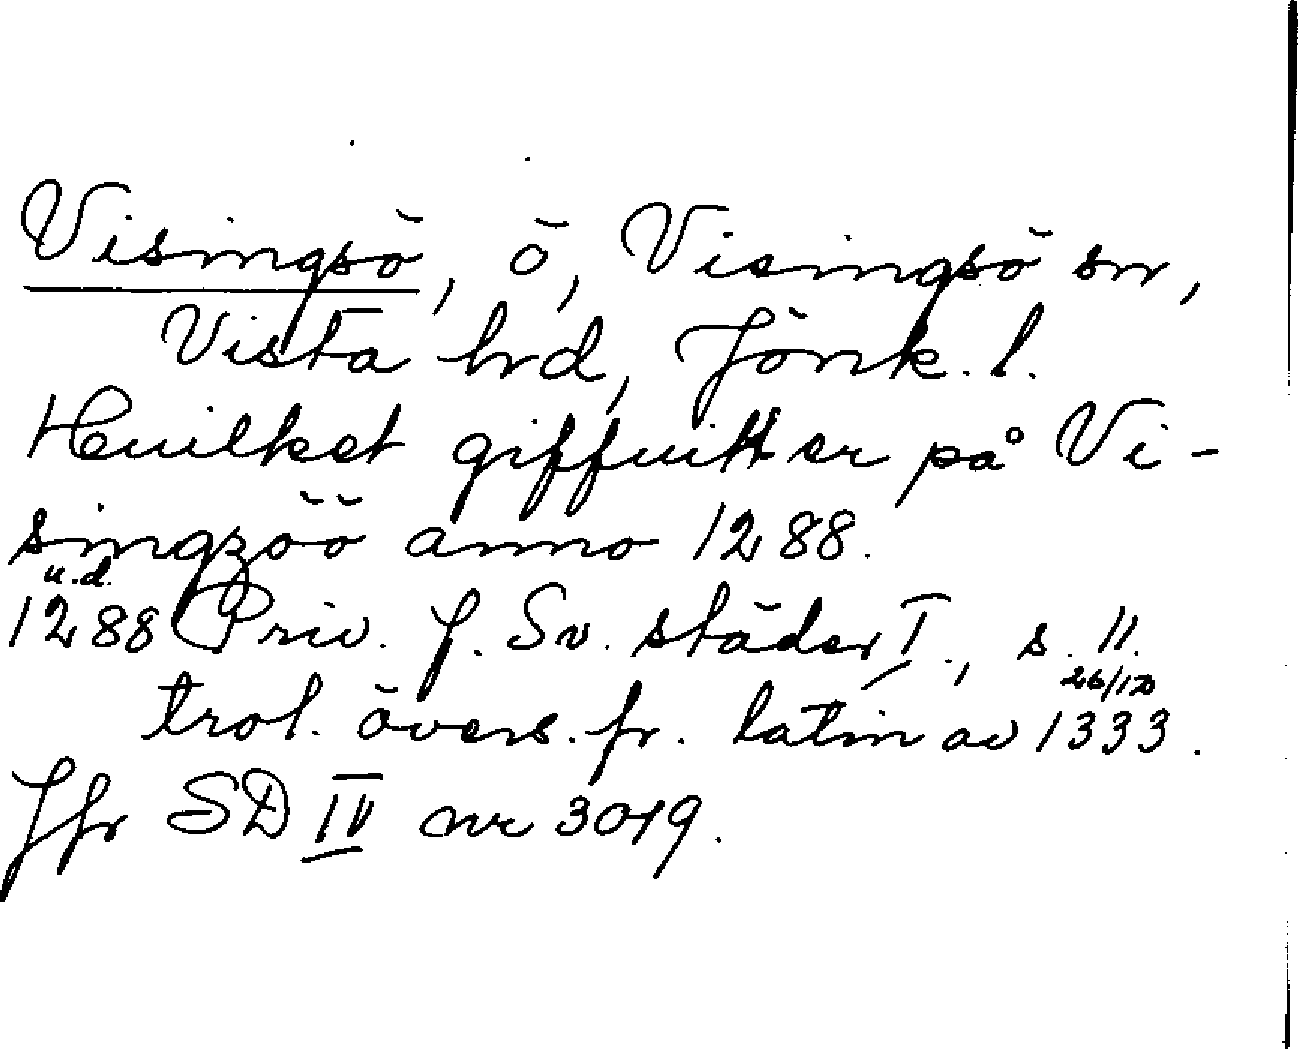 Visingsö, ö, Visingsö sn,
Vista hd, Jönk. l.
Huilket giffuitt er på Vi-
singzöö anno 1288.
u.d.
1288 Priv. f. Sv. städer I., s. 11.
26/12
trol. övers. fr. latin av 1333.
Jfr SD IV nr 3019.